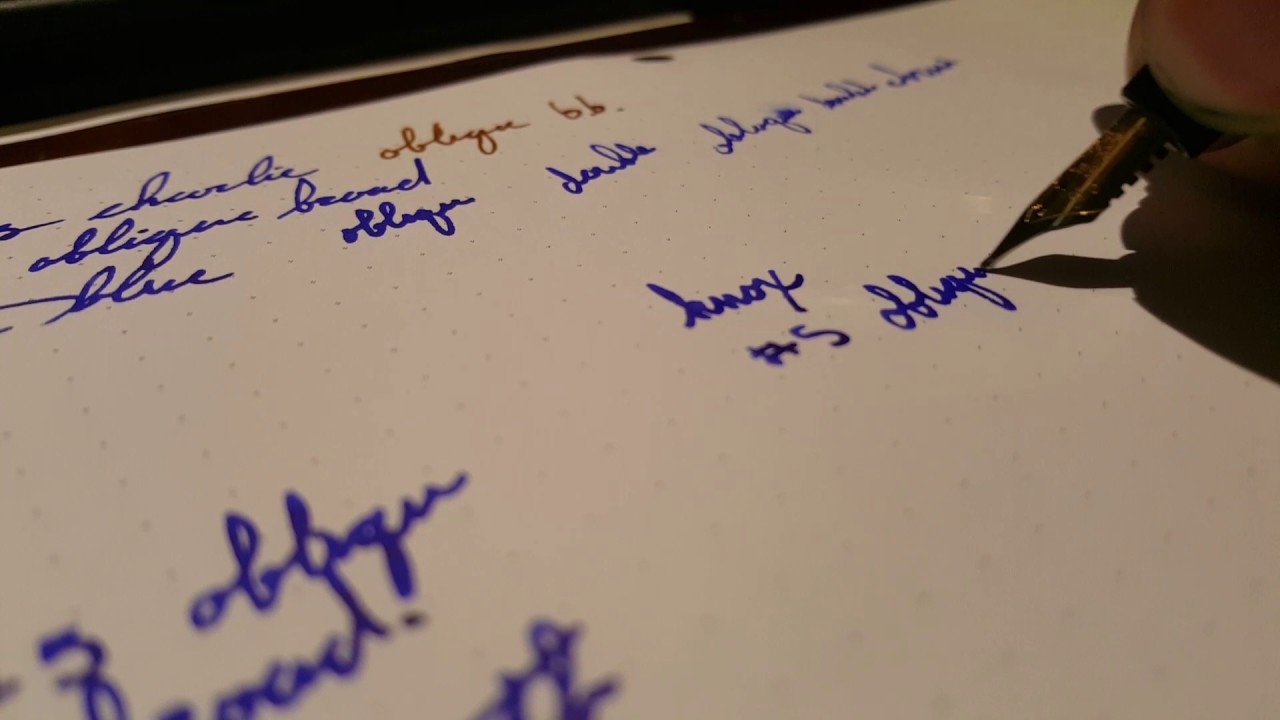 charlie oblique bb.
oblique broad
blue oblique double oblique
knox
#5 oblique
oblique
3 broad!